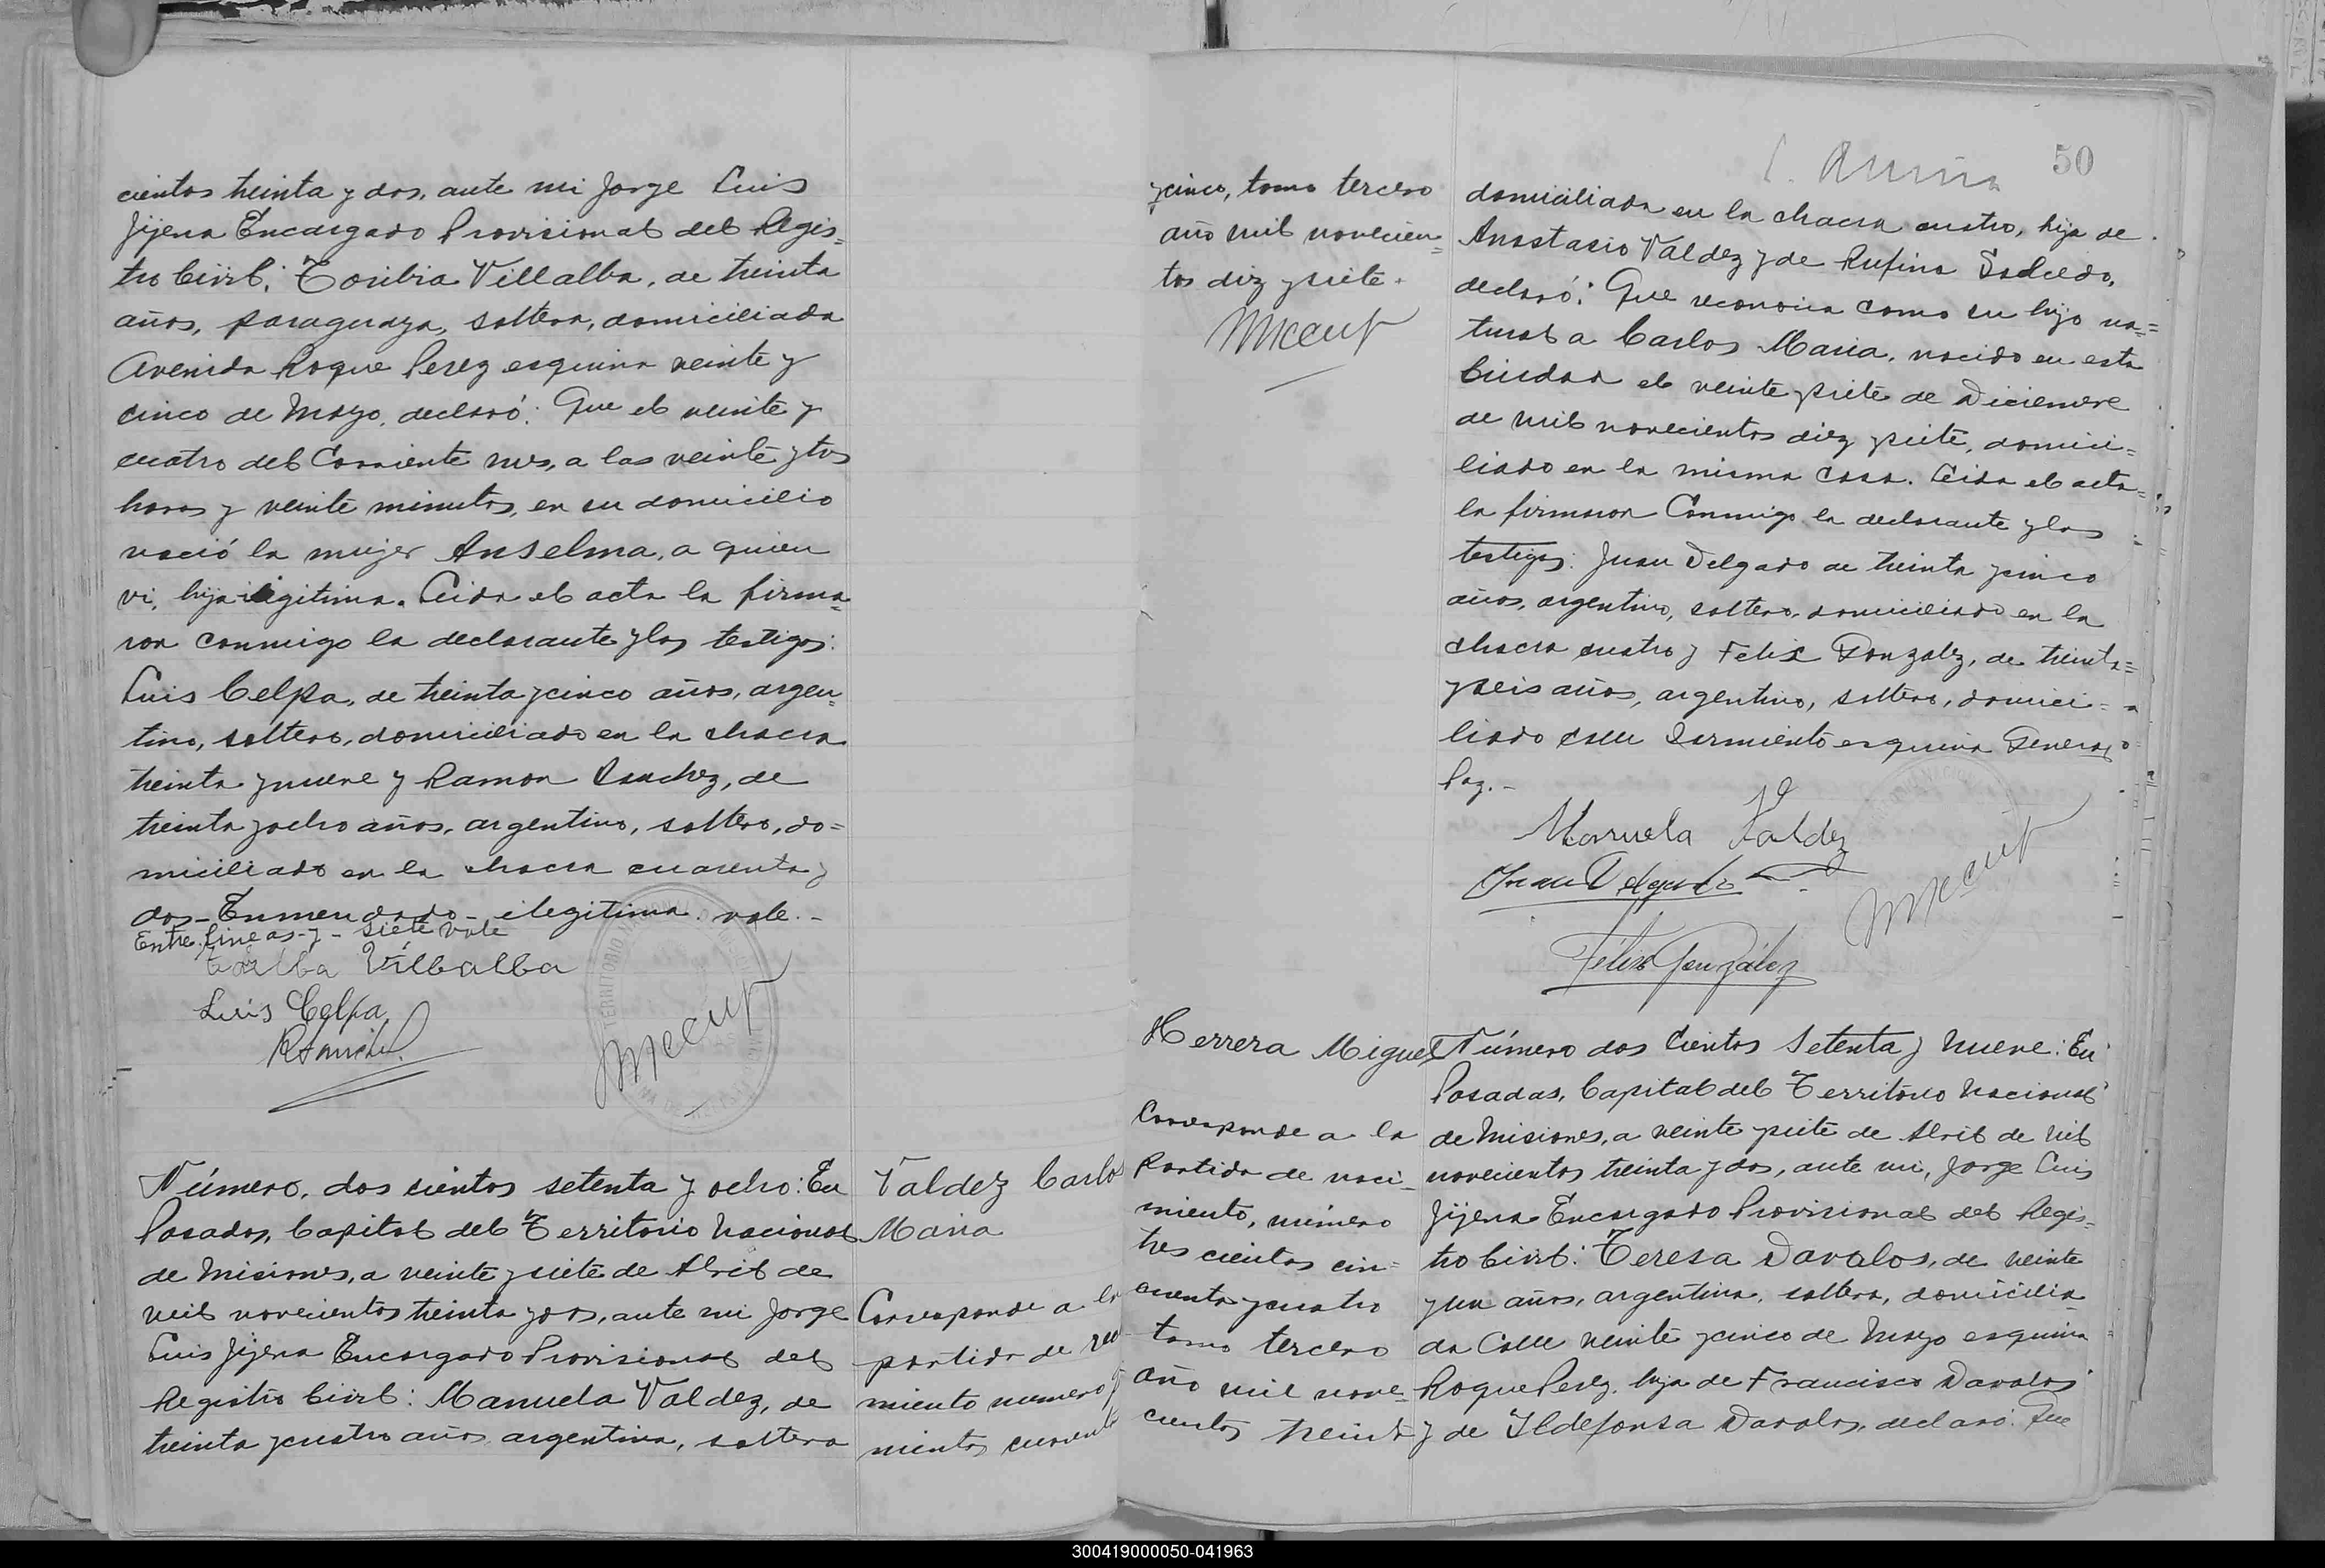 cientos treinta y dos, ante mi Jorge Luis
Jijena Encargado Provisional del Regis=
tro Civil: Toribia Villalba, de treinta
años, paraguaya, soltera, domiciliada
Avenida Roque Perez esquina veinte y
cinco de Mayo, declaró: Que el veinte y
cuatro del Corriente mes, a las veinte y tres
horas y veinte minutos, en su domicilio
nació la mujer Anselma, a quien
vi, hija ilegitima. Leida el acta la firma=
ron conmigo la declarante y los testigos:
Luis Celpa, de treinta y cinco años, argen=
tino, soltero, domiciliado en la chacra
treinta y nueve y Ramon Sanchez, de
treinta y ocho años, argentino, soltero, do=
miciliado en la chacra cuarenta y
dos - Enmendado - ilegitima. vale. -
Entre lineas - y - siete vale
Villalba
Luis Celpa
Número, dos cientos setenta y ocho: En
Posadas, Capital del Territorio Nacional
de Misiones, a veinte y siete de Abril de
mil novecientos treinta y dos, ante mi Jorge
Luis Jijena Encargado Provisional del
Registro Civil: Manuela Valdez, de
treinta y cuatro años argentina, soltera
Valdez Carlos
Maria
Corresponde a la
partida de
miento numero
cuarenta
y cinco, tomo tercero
año mil novecien=
tos diz y siete.
50
domiciliada en la chacra cuatro, hija de
Anastacio Valdez y de Rufina Salcedo,
declaró: Que reconocia como su hijo na=
tural a Carlos Maria, nacido en esta
Ciudad el veinte y siete de Diciembre
de mil novecientos diez y siete, domici=
liado en la misma casa. Leida el acta
la firmaron Conmigo la declarante y los
testigos: Juan Delgado de treinta y cinco
años, argentino, soltero, domiciliado en la
chacra cuatro y Felix Gonzalez, de treinta=
y seis años, argentino, soltero, domici=
liado calle Sarmiento esquina General
Paz. -
Manuela Valdez
Juan Delgado
Félix González
Herrera Miguel
Corresponde a la
Partida de naci-
miento, número
tres cientos cin=
cuenta y cuatro
tomo tercero
año mil nove=
cientos treinta
Número dos cientos setenta y nueve: En
Posadas, Capital del Territorio Nacional
de Misiones, a veinte y siete de Abril de mil
novecientos treinta y dos, ante mi, Jorge Luis
Jijena Encargado Provisional del Regis=
tro Civil: Teresa Davalos, de veinte
y un años, argentina, soltera, domicilia=
da Calle veinte y cinco de Mayo esquina
Roque Perez, hija de Francisco Davalos
y de Ildefonsa Davalos, declaró: Que
300419000050-041963